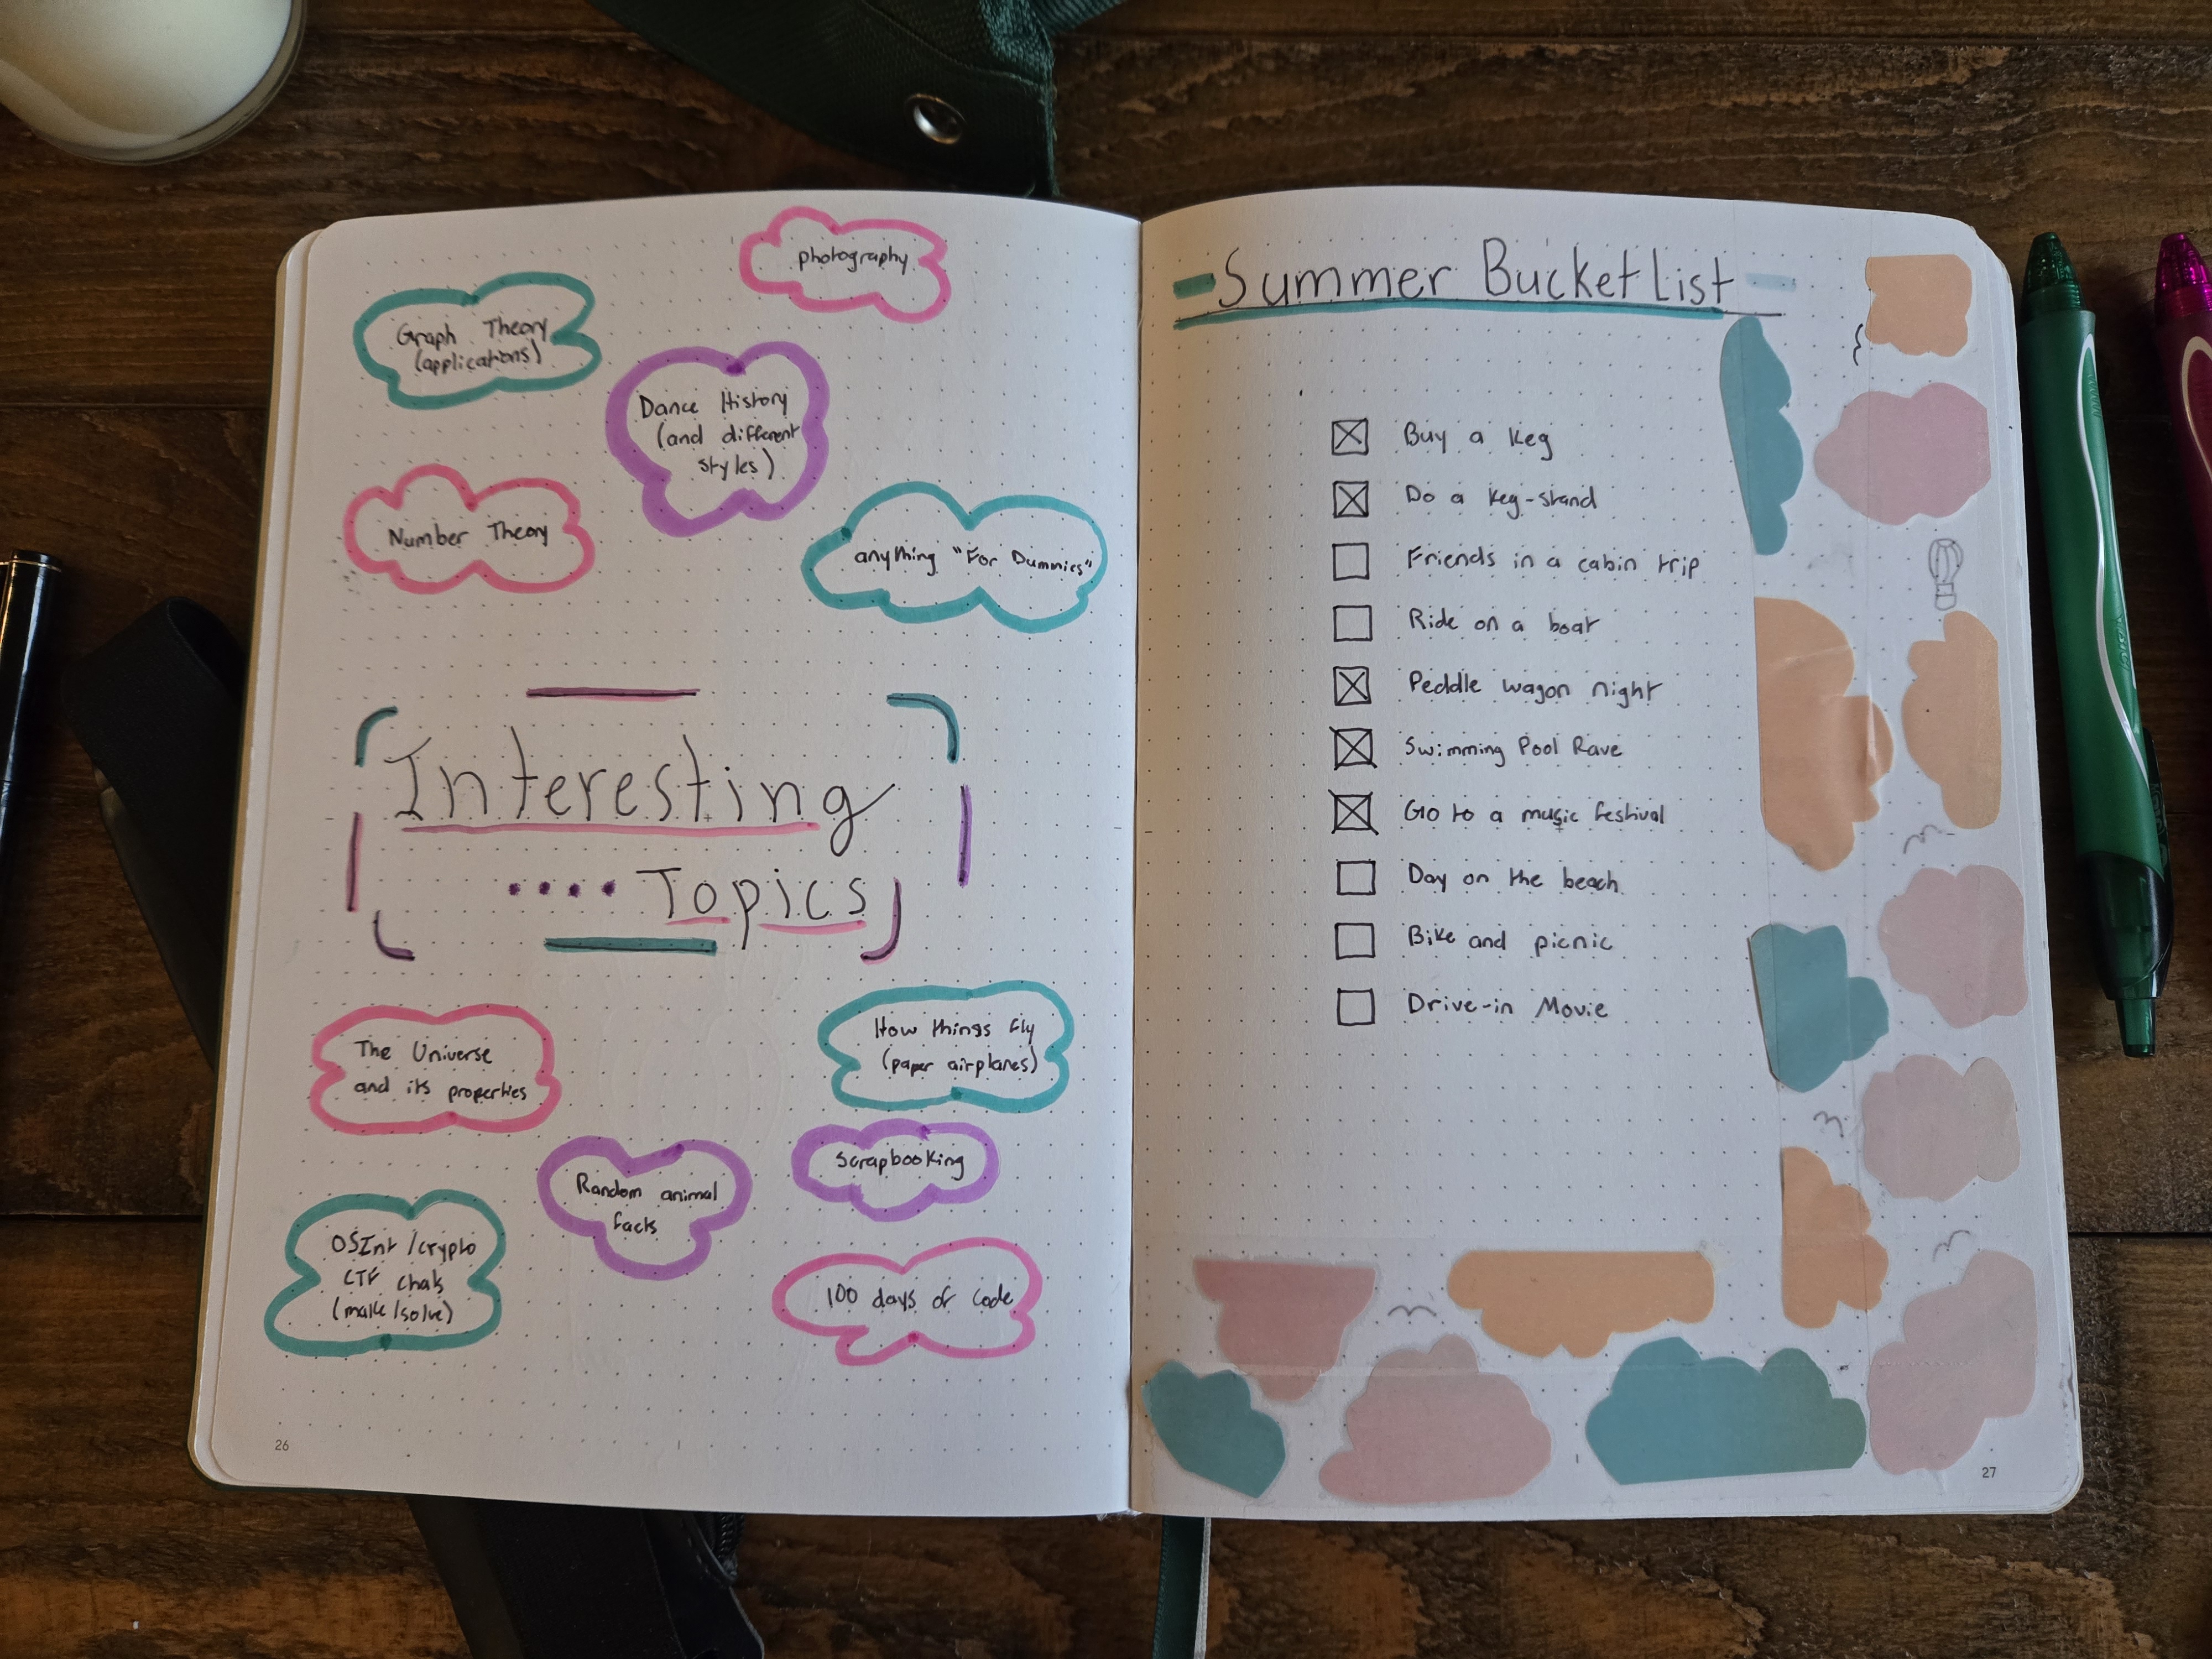 photography
Graph Theory
(applications)
Dance History
(and different
styles)
Number Theory
anything "For Dummies"
Interesting
Topics
The Universe
and its properties
How things fly
(paper airplanes)
Random animal
facts
Scrapbooking
OSInt/crypto
CTF chals
(make/solve)
100 days of code
26
Summer Bucket List
Buy a keg
Do a keg-stand
Friends in a cabin trip
Ride on a boat
Peddle wagon night
Swimming Pool Rave
Go to a music festival
Day on the beach
Bike and picnic
Drive-in Movie
27